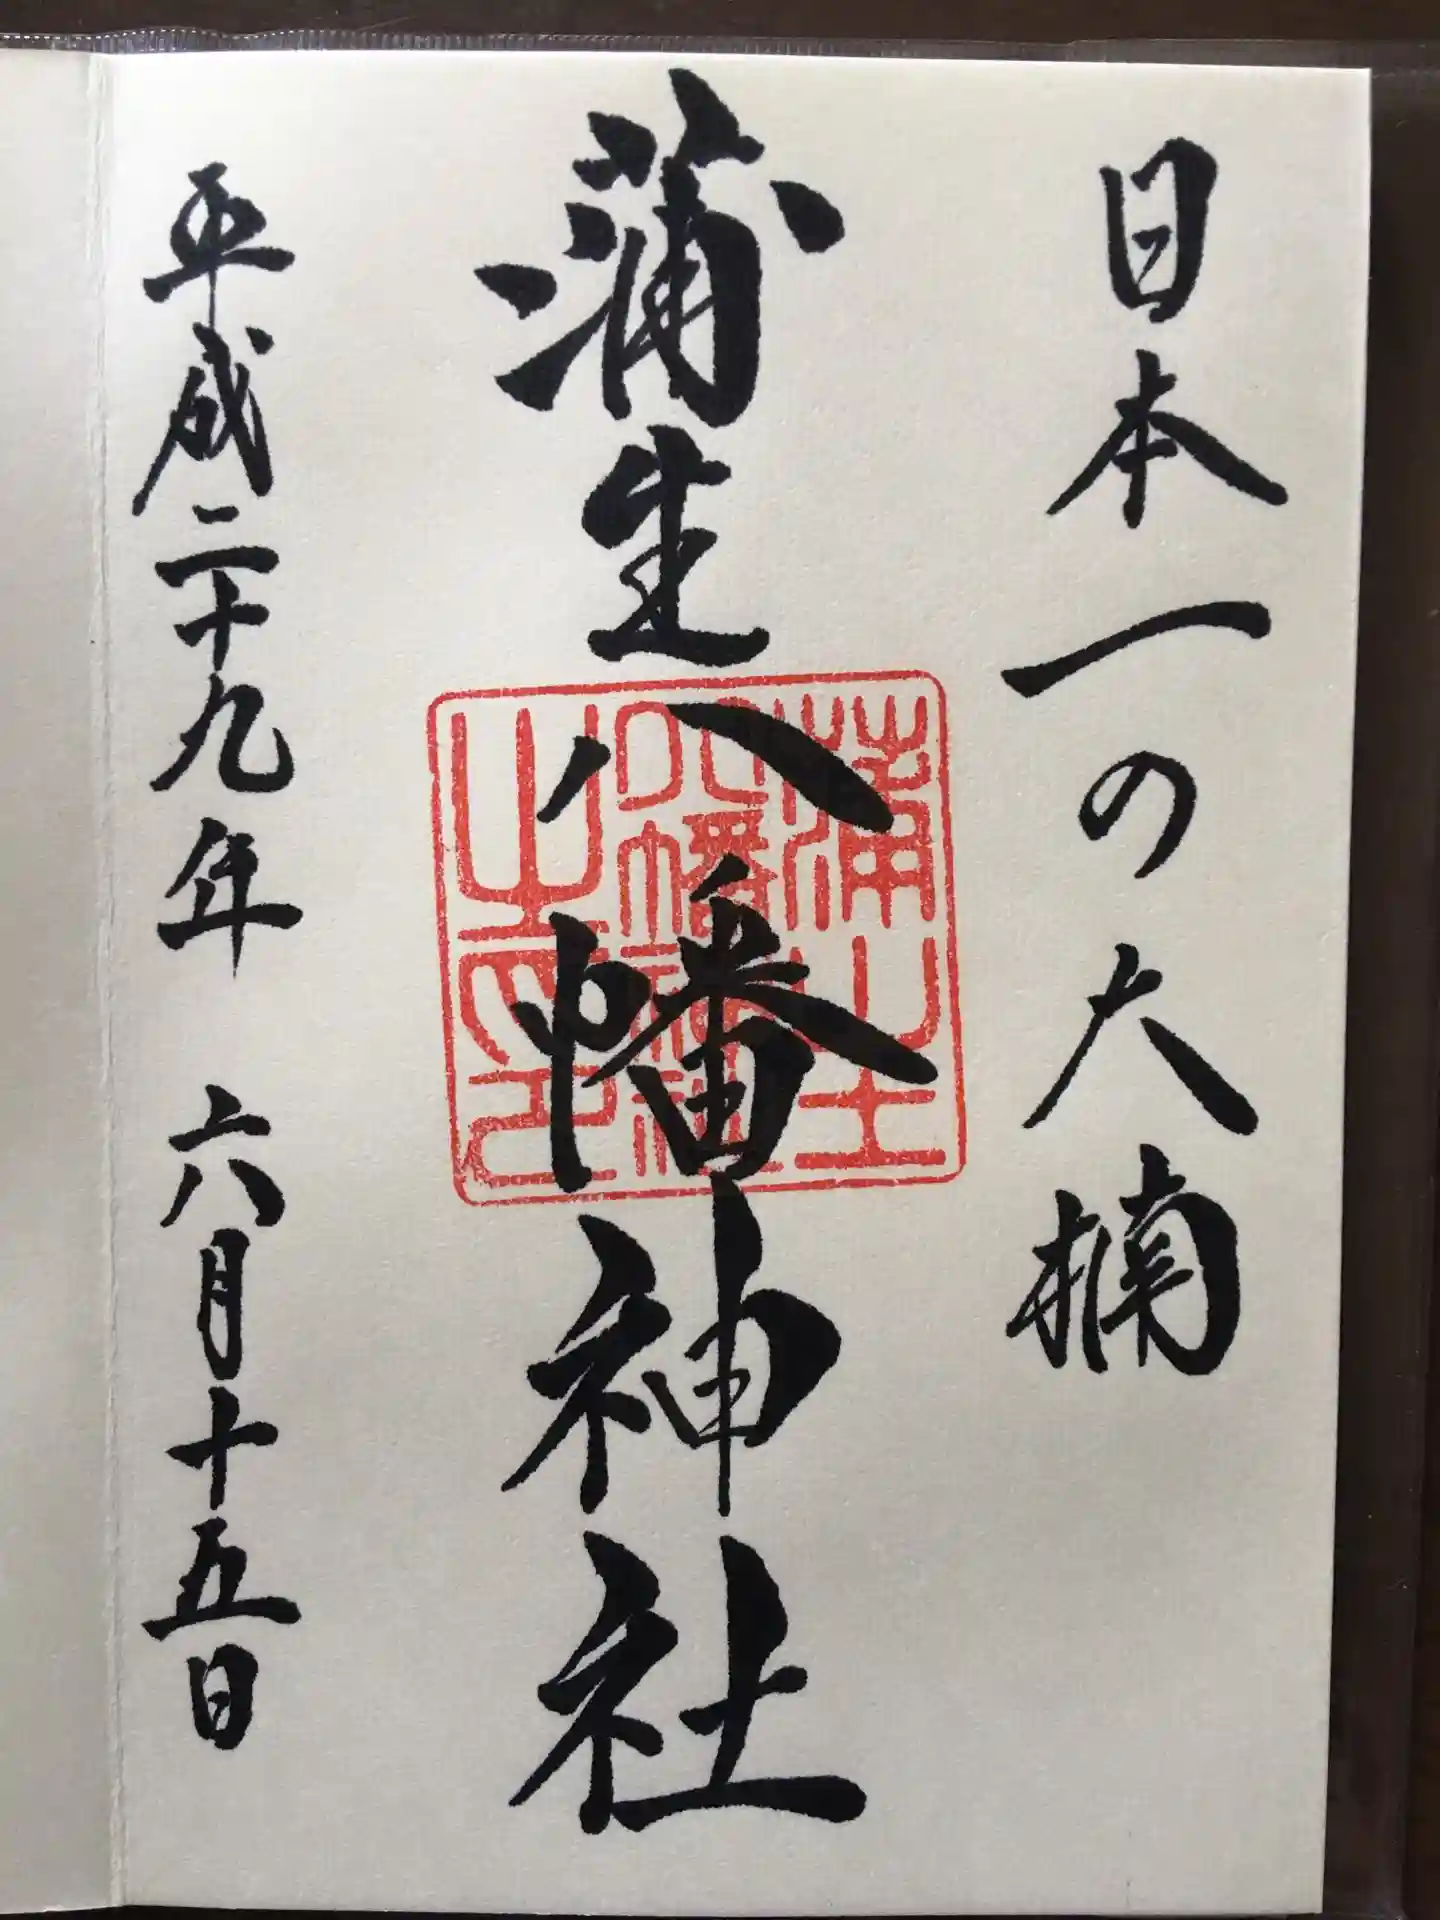 日本一の大楠
蒲生八幡神社
蒲生
八幡神社
之印
平成二十九年 六月十五日